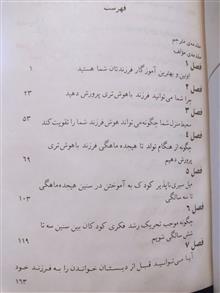 فهرست
مقدمه‌ی مترجم
مقدمه‌ی مؤلف
فصل ۱
اولین و بهترین آموزگار فرزندتان شما هستید ۱
فصل ۲
چرا شما می‌توانید فرزند باهوش‌تری پرورش دهید ۲۳
فصل ۳
محیط منزل شما چگونه می‌تواند هوش فرزند شما را تقویت کند ۵۳
فصل ۴
چگونه از هنگام تولد تا هیجده ماهگی فرزند باهوش‌تری
پرورش دهیم ۶۹
فصل ۵
میل سیری‌ناپذیر کودک به آموختن در سنین هیجده‌ماهگی
تا سه سالگی ۱۰۳
فصل ۶
چگونه موجب تحریک رشد فکری کودکان بین سنین سه تا
شش سالگی شویم ۱۱۹
فصل ۷
آیا می‌توانید قبل از دبستان خواندن را به فرزند خود
۱۶۳